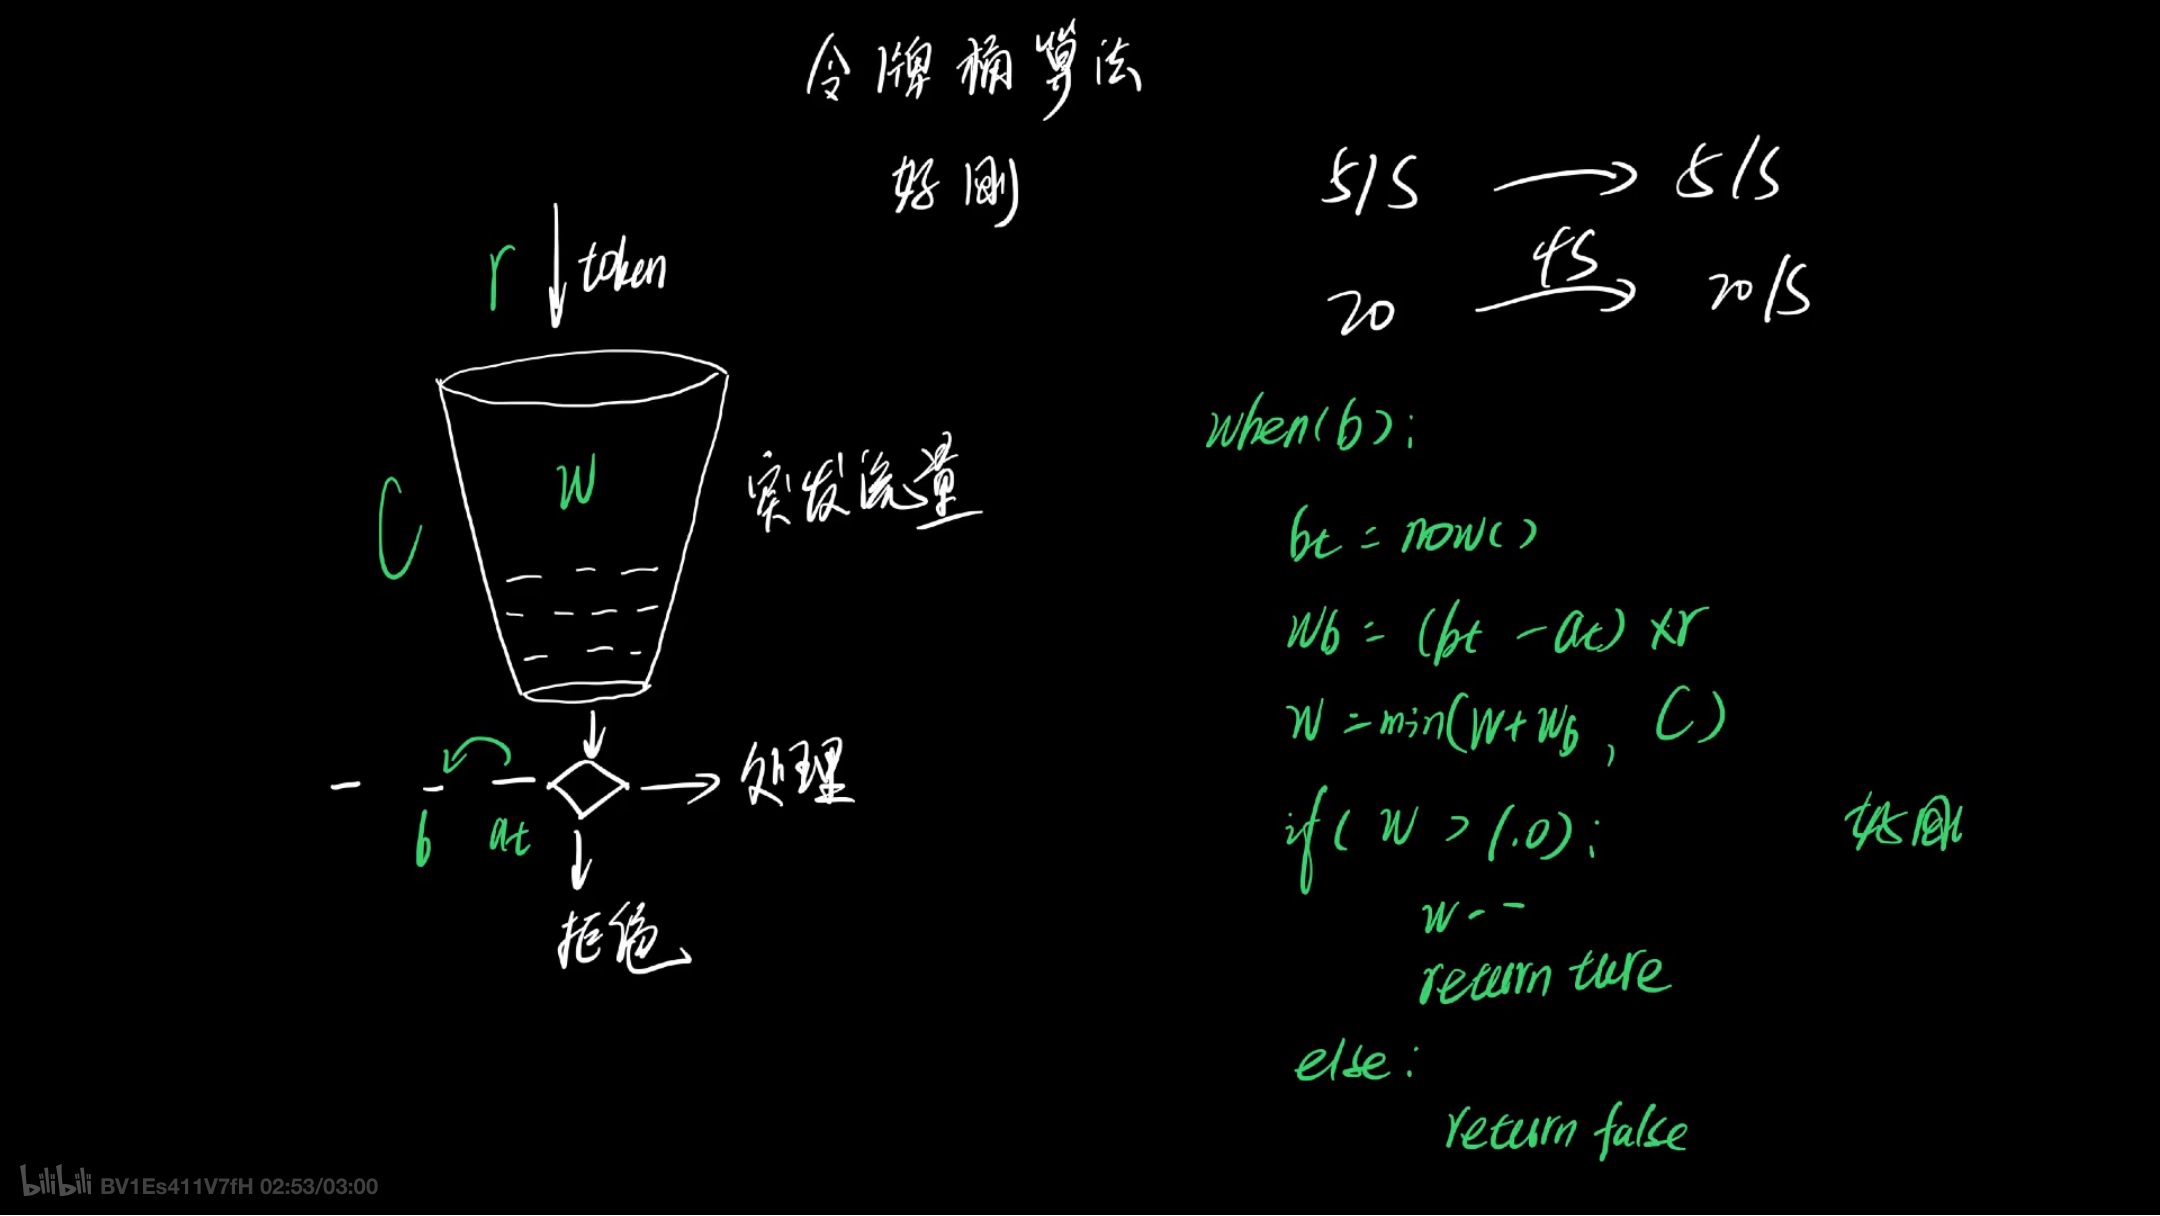 令牌桶算法
好刚
5/S → 5/S
20 4S → 20/S
r
token
C
W
突发流量
b
at
处理
拒绝
when(b):
bt = now()
wb = (bt - at) × r
w = min(w + wb, C)
if(w > 1.0):
w--
return ture
else:
return false
好刚
bilibili BV1Es411V7fH 02:53/03:00